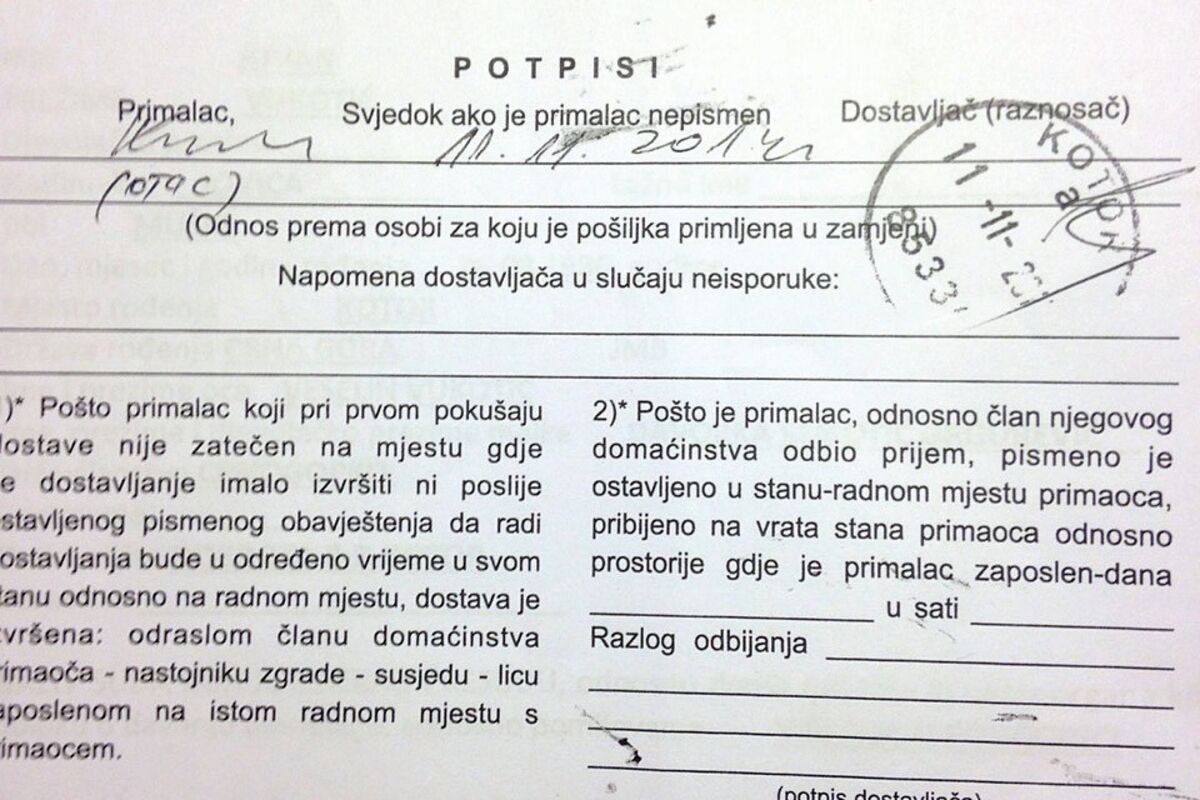 POTPISI
Primalac, Svjedok ako je primalac nepismen Dostavljač (raznosač)
11. 11. 2014
(OTAC)
KOTOR
a
11 -11- 20
8533
(Odnos prema osobi za koju je pošiljka primljena u zamjeni)
Napomena dostavljača u slučaju neisporuke:
)* Pošto primalac koji pri prvom pokušaju
dostave nije zatečen na mjestu gdje
e dostavljanje imalo izvršiti ni poslije
stavljenog pismenog obavještenja da radi
ostavljanja bude u određeno vrijeme u svom
tanu odnosno na radnom mjestu, dostava je
zvršena: odraslom članu domaćinstva
rimaoča - nastojniku zgrade - susjedu - licu
aposlenom na istom radnom mjestu s
rimaocem.
2)* Pošto je primalac, odnosno član njegovog
domaćinstva odbio prijem, pismeno je
ostavljeno u stanu-radnom mjestu primaoca,
pribijeno na vrata stana primaoca odnosno
prostorije gdje je primalac zaposlen-dana
u sati
Razlog odbijanja
(potpis dostavljača)